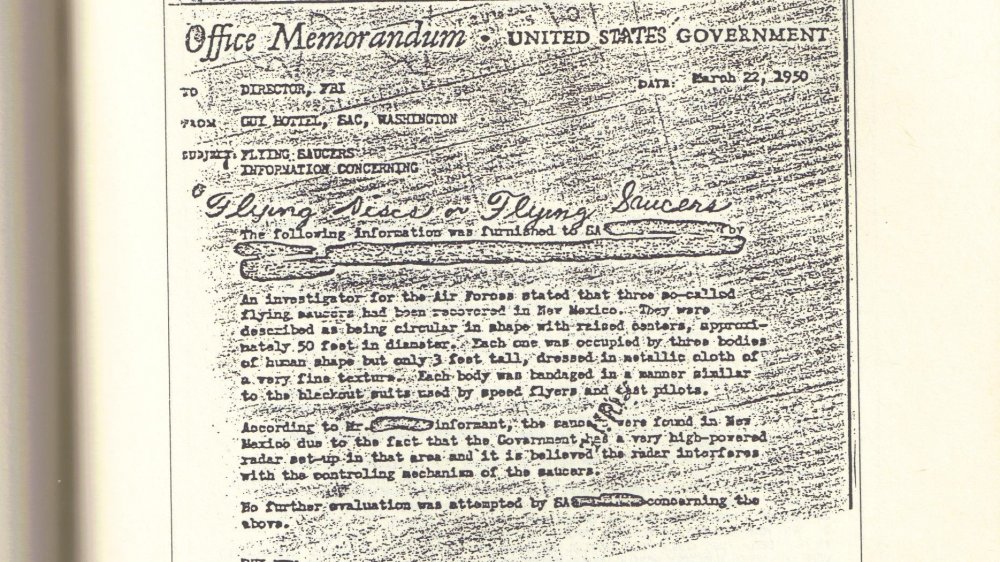 Office Memorandum • UNITED STATES GOVERNMENT
TO DIRECTOR, FBI DATE: March 22, 1950
FROM GUY HOTTEL, SAC, WASHINGTON
SUBJECT: FLYING SAUCERS
INFORMATION CONCERNING
Flying Discs or Flying Saucers
The following information was furnished to SA by
An investigator for the Air Forces stated that three so-called
flying saucers had been recovered in New Mexico. They were
described as being circular in shape with raised centers, approxi-
mately 50 feet in diameter. Each one was occupied by three bodies
of human shape but only 3 feet tall, dressed in metallic cloth of
a very fine texture. Each body was bandaged in a manner similar
to the blackout suits used by speed flyers and test pilots.
According to Mr. informant, the saucers were found in New
Mexico due to the fact that the Government has a very high-powered
radar set-up in that area and it is believed the radar interferes
with the controling mechanism of the saucers.
No further evaluation was attempted by SA concerning the
above.